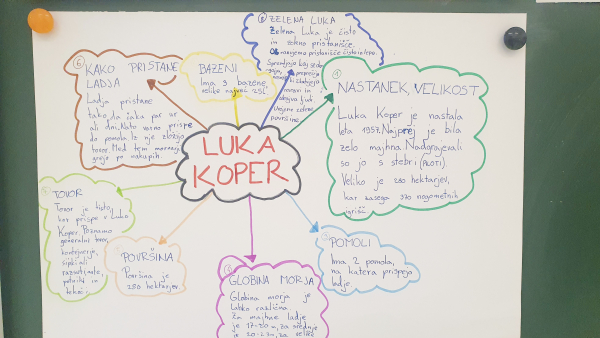 LUKA
KOPER
⑧ ZELENA LUKA
Zelena Luka je čisto
in zeleno pristanišče.
① NASTANEK, VELIKOST
Luka Koper je nastala
leta 1957. Najprej je bila
zelo majhna. Nadgrajevali
so jo s stebri (PILOTI).
Veliko je 280 hektarjev,
kar zasega 370 nogometnih
igrišč.
POMOLI
Ima 2 pomola,
na katera prispejo
ladje.
③ GLOBINA MORJA
Globina morja je
lahko različna
Za majhne ladje
je 17-20 m, za srednje
POVRŠINA
Površina je
280 hektarjev.
TOVOR
Tovor je tisto,
kar prispe v Luko
Koper. Poznamo
generalni tovor,
kontejnerje,
sipki ali
razsuti tovor,
potniki in
tekoči.
⑥ KAKO PRISTANE
LADJA
Ladja pristane
tako, da čaka par ur
ali dni. Nato varno prispe
do pomola. Iz nje zložijo
tovor. Med tem mornarji
grejo po nakupih.
BAZENI
Ima 3 bazene,